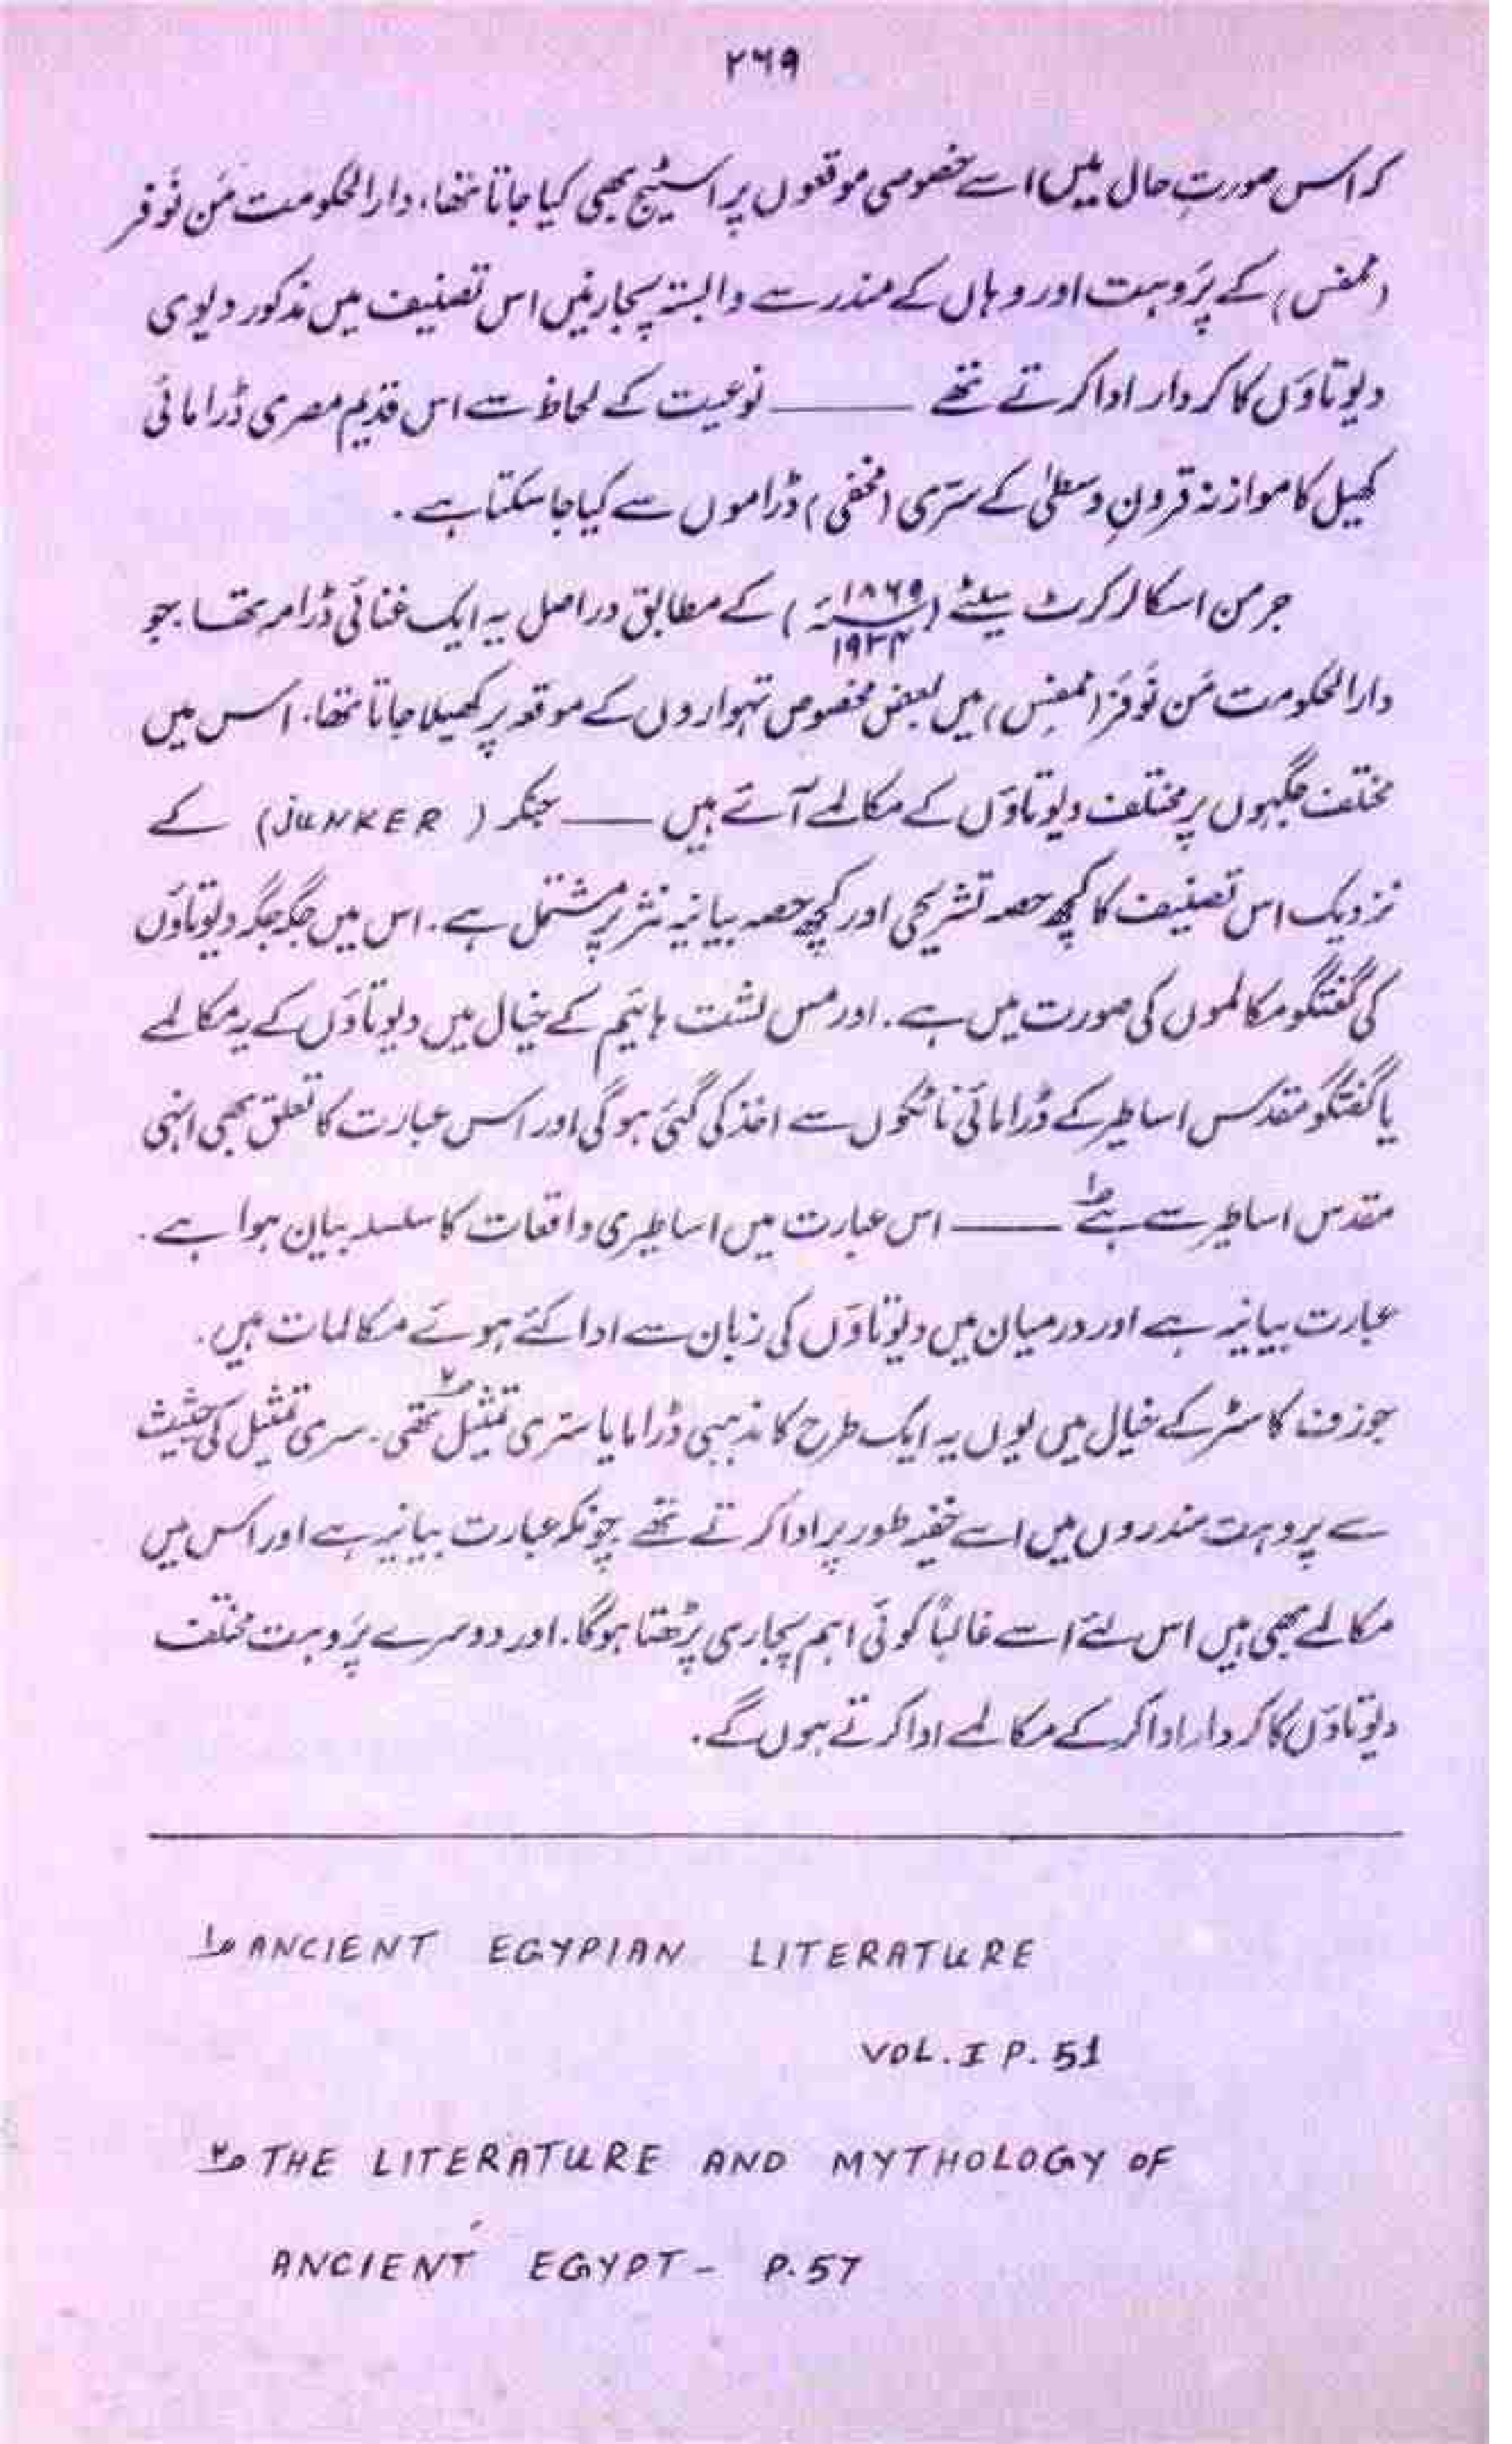 ۲۶۹
کہ اس صورتِ حال میں اسے خصوصی موقعوں پر اسٹیج بھی کیا جاتا تھا، دارالحکومت مَن نَوفر
(ممفس) کے پَروہت اور وہاں کے مندر سے وابستہ پجارنیں اس تصنیف میں مذکور دیوی
دیوتاوَں کا کردار ادا کرتے تھے ــــــــ نوعیت کے لحاظ سے اس قدیم مصری ڈرامائی
کھیل کا موازنہ قرونِ وسطیٰ کے سرّی (مخفی) ڈراموں سے کیا جا سکتا ہے.
جرمن اسکالر کرٹ سیٹھے (۱۸۶۹ء / ۱۹۳۴) کے مطابق دراصل یہ ایک غنائی ڈرامہ تھا جو
دارالحکومت مَن نَوفَر (ممفِس) میں بعض مخصوص تہواروں کے موقعہ پر کھیلا جاتا تھا. اس میں
مختلف جگہوں پر مختلف دیوتاوَں کے مکالمے آتے ہیں ــــــــ جنکر (JUNKER) کے
نزدیک اس تصنیف کا کچھ حصہ تشریحی اور کچھ حصہ بیانیہ نثر پر مشتمل ہے. اس میں جگہ جگہ دیوتاوَں
کی گفتگو مکالموں کی صورت میں ہے. اور مس لشت ہائیم کے خیال میں دیوتاوَں کے یہ مکالمے
یا گفتگو مقدس اساطیر کے ڈرامائی ناٹکوں سے اخذ کی گئی ہوگی اور اس عبارت کا تعلق بھی انہی
مقدس اساطیر سے ہے۱ ــــــــ اس عبارت میں اساطیری واقعات کا سلسلہ بیان ہوا ہے.
عبارت بیانیہ ہے اور درمیان میں دیوتاوَں کی زبان سے ادا کئے ہوئے مکالمات ہیں.
جوزفنا کاسٹر کے خیال میں یوں یہ ایک طرح کا مذہبی ڈراما یا سرّی تمثیل تھی۲. سری تمثیل کی حیثیت
سے پروہت مندروں میں اسے خفیہ طور پر ادا کرتے تھے چونکہ عبارت بیانیہ ہے اور اس میں
مکالمے بھی ہیں اس لئے اسے غالباً کوئی اہم پجاری پڑھتا ہوگا. اور دوسرے پَروہت مختلف
دیوتاوَں کا کردار ادا کر کے مکالمے ادا کرتے ہوں گے.
۱ ANCIENT EGYPIAN LITERATURE
VOL. I P. 51
۲ THE LITERATURE AND MYTHOLOGY OF
ANCIENT EGYPT - P. 57